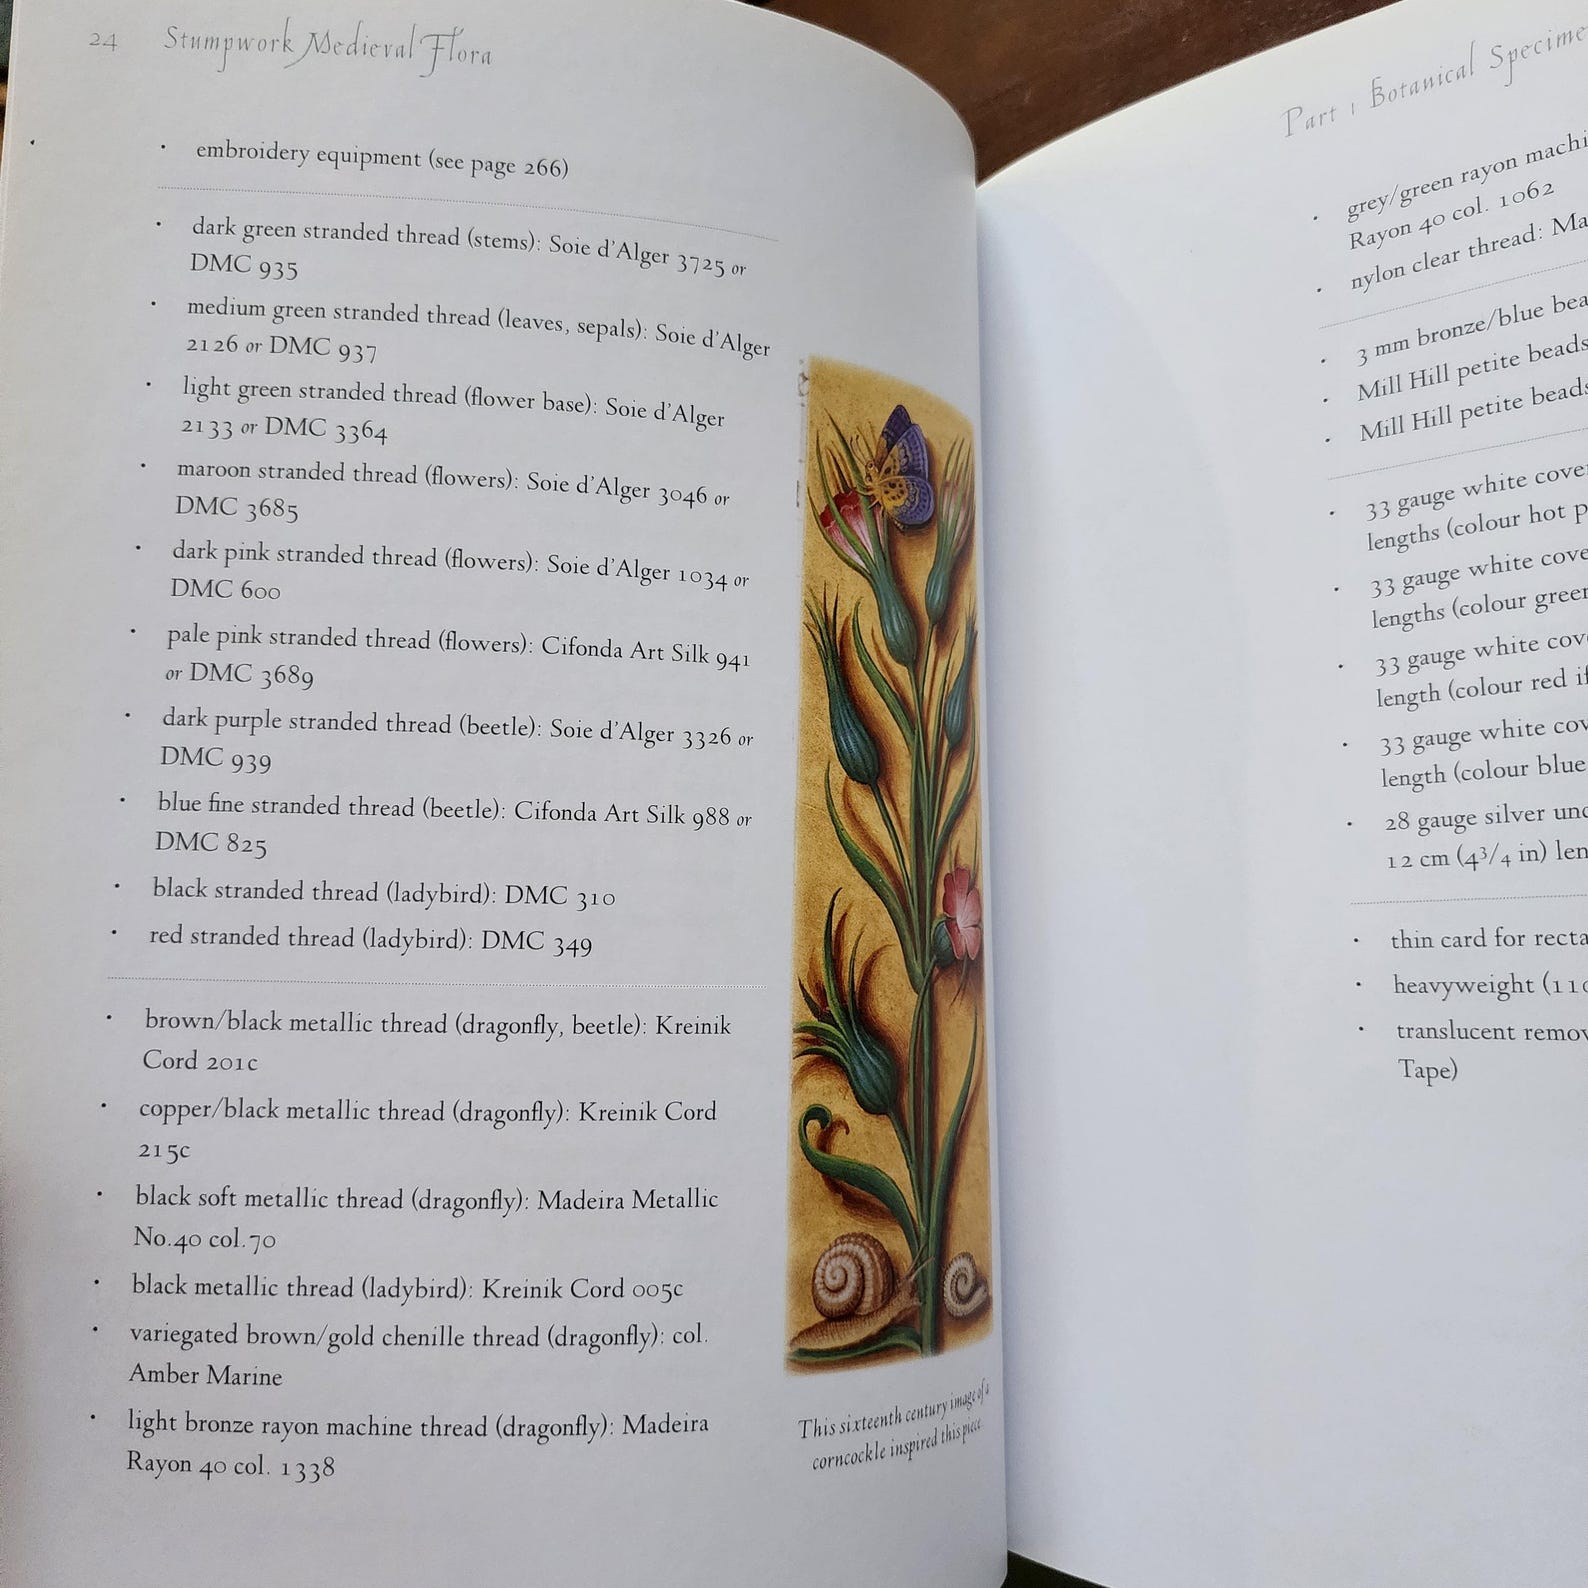 24 Stumpwork Medieval Flora
• embroidery equipment (see page 266)
• dark green stranded thread (stems): Soie d'Alger 3725 or
DMC 935
• medium green stranded thread (leaves, sepals): Soie d'Alger
2126 or DMC 937
• light green stranded thread (flower base): Soie d'Alger
2133 or DMC 3364
• maroon stranded thread (flowers): Soie d'Alger 3046 or
DMC 3685
• dark pink stranded thread (flowers): Soie d'Alger 1034 or
DMC 600
• pale pink stranded thread (flowers): Cifonda Art Silk 941
or DMC 3689
• dark purple stranded thread (beetle): Soie d'Alger 3326 or
DMC 939
• blue fine stranded thread (beetle): Cifonda Art Silk 988 or
DMC 825
• black stranded thread (ladybird): DMC 310
• red stranded thread (ladybird): DMC 349
• brown/black metallic thread (dragonfly, beetle): Kreinik
Cord 201c
• copper/black metallic thread (dragonfly): Kreinik Cord
215c
• black soft metallic thread (dragonfly): Madeira Metallic
No.40 col.70
• black metallic thread (ladybird): Kreinik Cord 005c
• variegated brown/gold chenille thread (dragonfly): col.
Amber Marine
• light bronze rayon machine thread (dragonfly): Madeira
Rayon 40 col. 1338
This sixteenth century image of a
corncockle inspired this piece.
Part 1 Botanical Specime
• grey/green rayon machi
Rayon 40 col. 1062
• nylon clear thread: Ma
• 3 mm bronze/blue bea
• Mill Hill petite beads
• Mill Hill petite beads
• 33 gauge white cove
lengths (colour hot p
• 33 gauge white cove
lengths (colour green
• 33 gauge white cov
length (colour red if
• 33 gauge white cov
length (colour blue
• 28 gauge silver unc
12 cm (4 3/4 in) len
• thin card for recta
• heavyweight (110
• translucent remov
Tape)